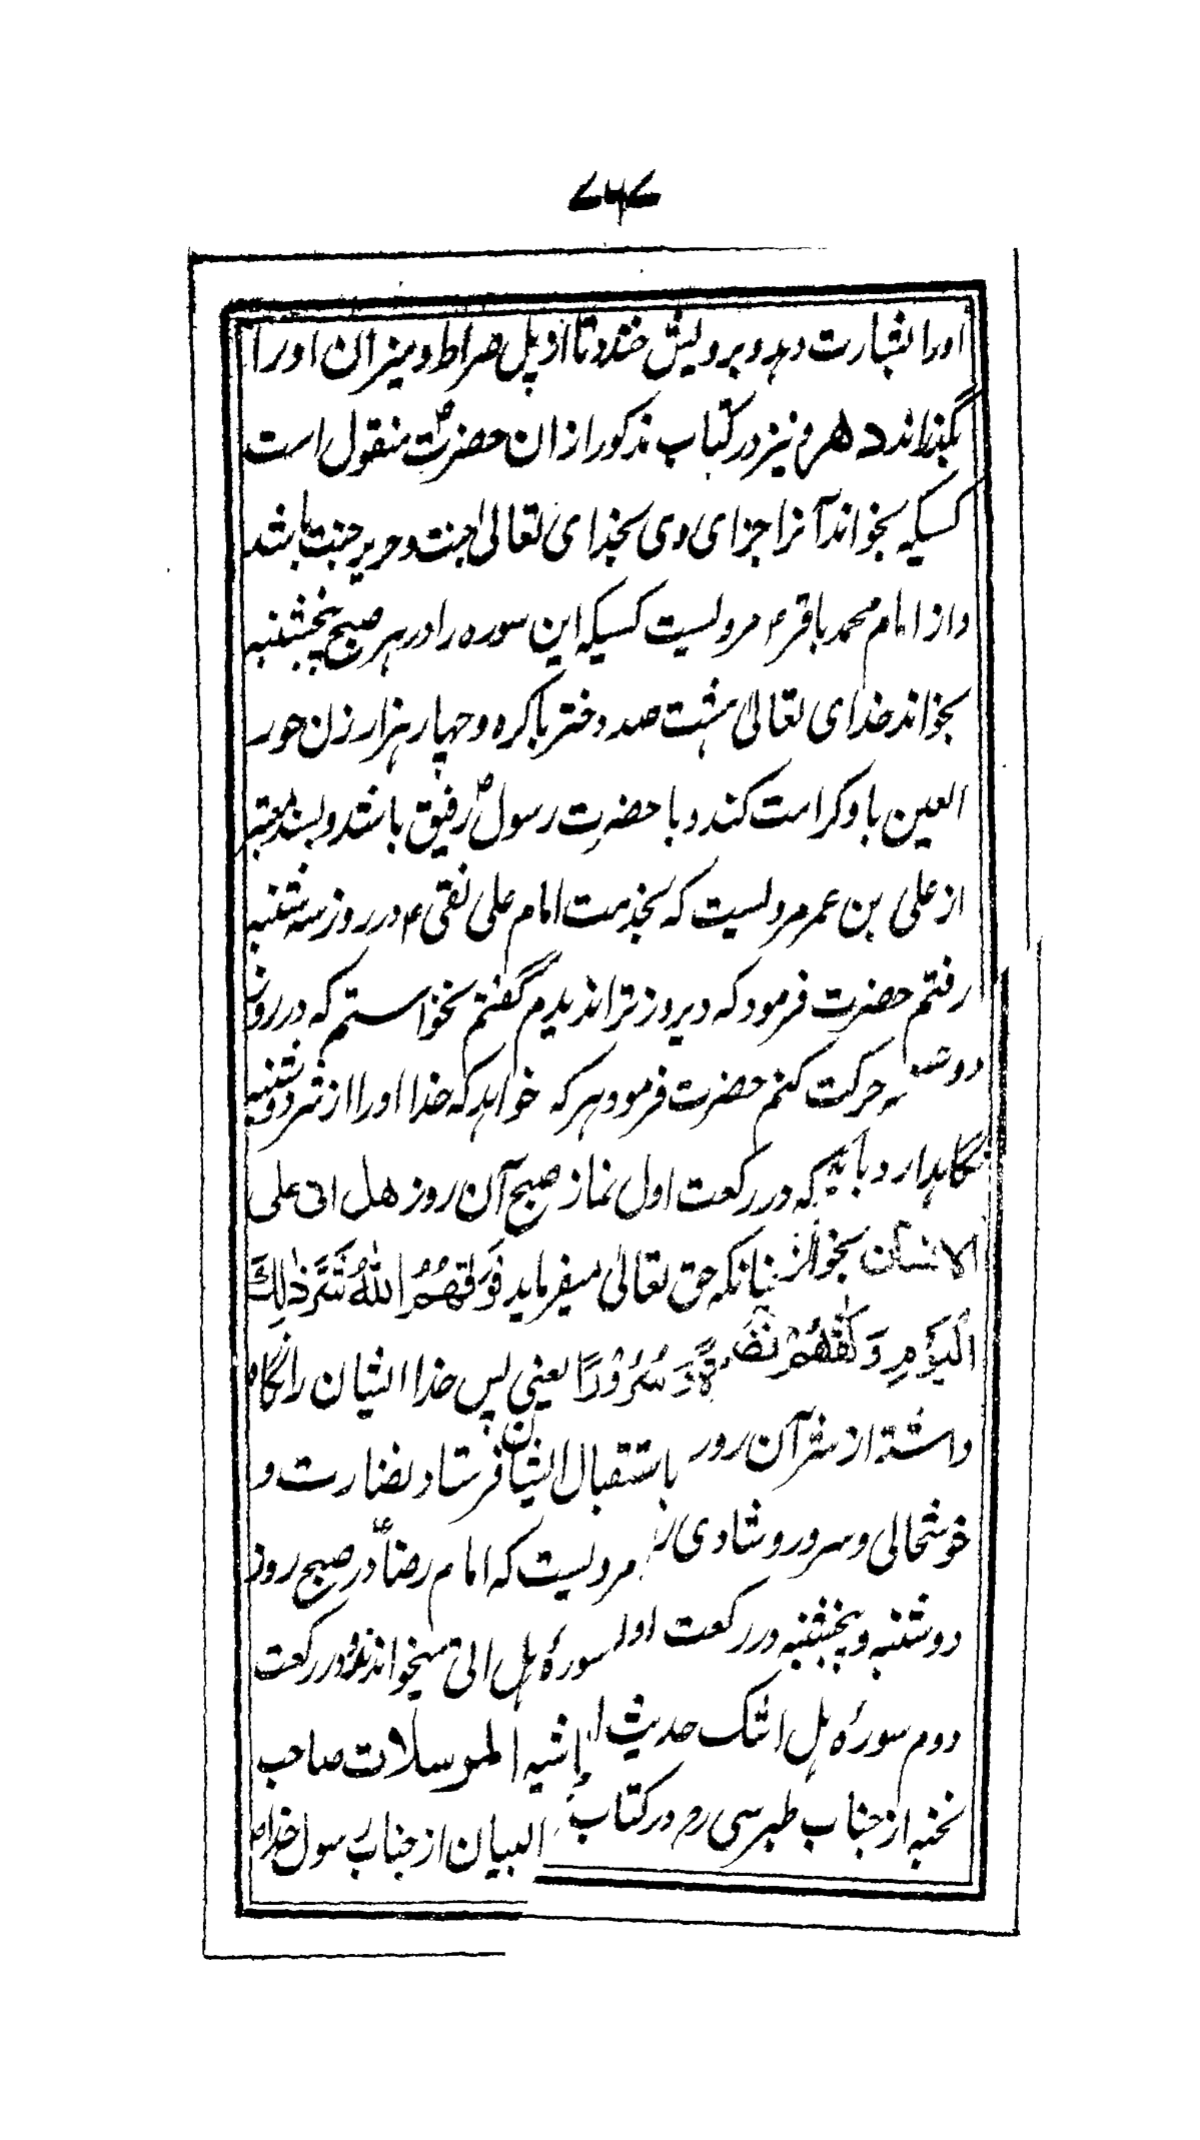 ۷۶۷
اورا بشارت دهد و برویش خندد تا از پل صراط و میزان اورا
بگذراند دهر و نیز در کتاب مذکور از ان حضرتؐ منقول است
کسیکه بخواند آنرا جزای وی بخدای تعالی جنت و حریر جنت باشد
و از امام محمد باقرؑ مرویست کسیکه این سوره را در هر صبح پنجشنبه
بخواند خدای تعالیٰ هشت صد دختر باکره و چهار هزار زن حور
العین باو کرامت کند و با حضرت رسولؐ رفیق باشد و بسند معتبر
از علی بن عمر مرویست که بخدمت امام علی نقیؑ در روز سه شنبه
رفتم حضرت فرمود که دیروز ترا ندیدم گفتم نخواستم که در روز
دوشنبه حرکت کنم حضرت فرمود هر که خواهد که خدا اورا از شر دوشنبه
نگاهدارد باید که در رکعت اول نماز صبح آن روز هل اتی علی
الانسان بخواند چنانکه حق تعالیٰ میفرماید فَوَقٰهُمُ اللّٰهُ شَرَّ ذٰلِكَ
الْیَوْمِ وَ لَقّٰهُمْ نَضْرَةً وَ سُرُوْرًا یعنی پس خدا ایشان را نگاه
داشته از شر آن روز باستقبال ایشان فرستاد نضارت و
خوشحالی و سرور و شادی را مرویست که امام رضاؑ در صبح روز
دوشنبه و پنجشنبه در رکعت اول سورهٔ هل اتی میخواندند و در رکعت
دوم سورهٔ هل اتٰک حدیث الغاشیه المرسلات صاحب
نخبه از جناب طبرسی رح در کتاب البیان از جناب رسول خداؐ